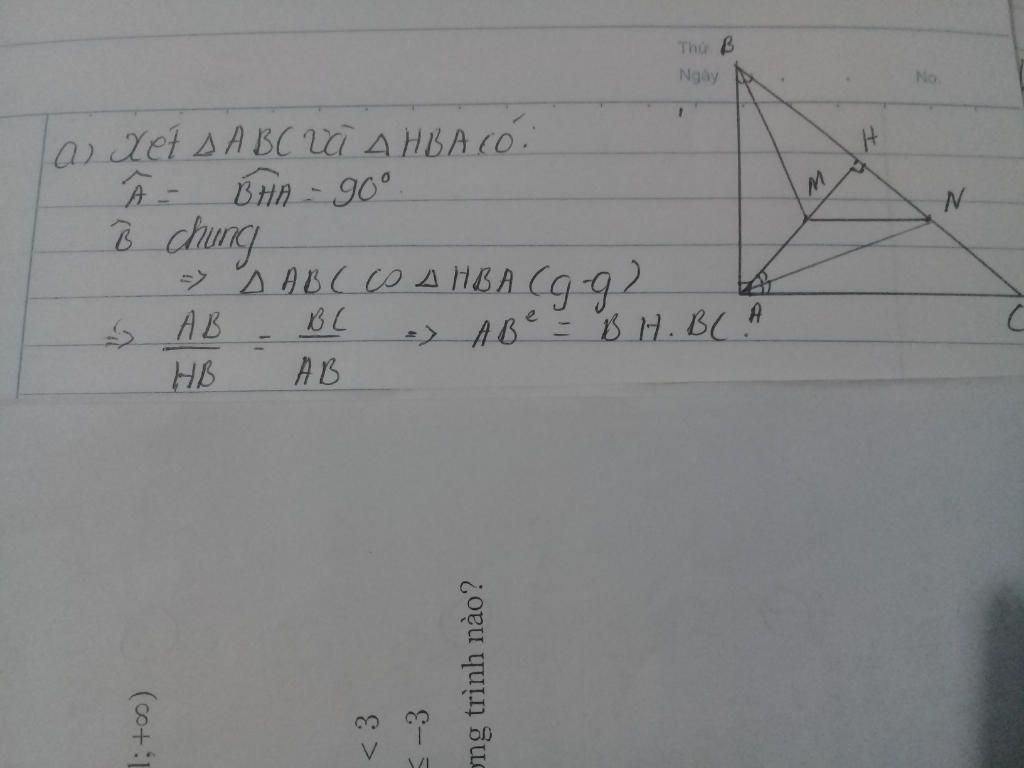 Thứ B
Ngày No.
a) Xét △ABC và △HBA có:
Â = B̂HA = 90°
B̂ chung
=> △ABC ∽ △HBA (g-g)
=> AB/HB = BC/AB => AB² = BH.BC.
H
M
N
A
C
1;+∞)
< 3
≤ −3
ơng trình nào?